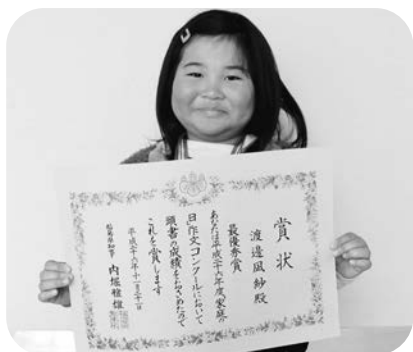 賞状
渡邉凪紗殿
最優秀賞
あなたは平成二十六年度家庭の
日」作文コンクールにおいて
頭書の成績をおさめたので
これを賞します
平成二十六年十一月二十一日
福島県知事 内堀雅雄